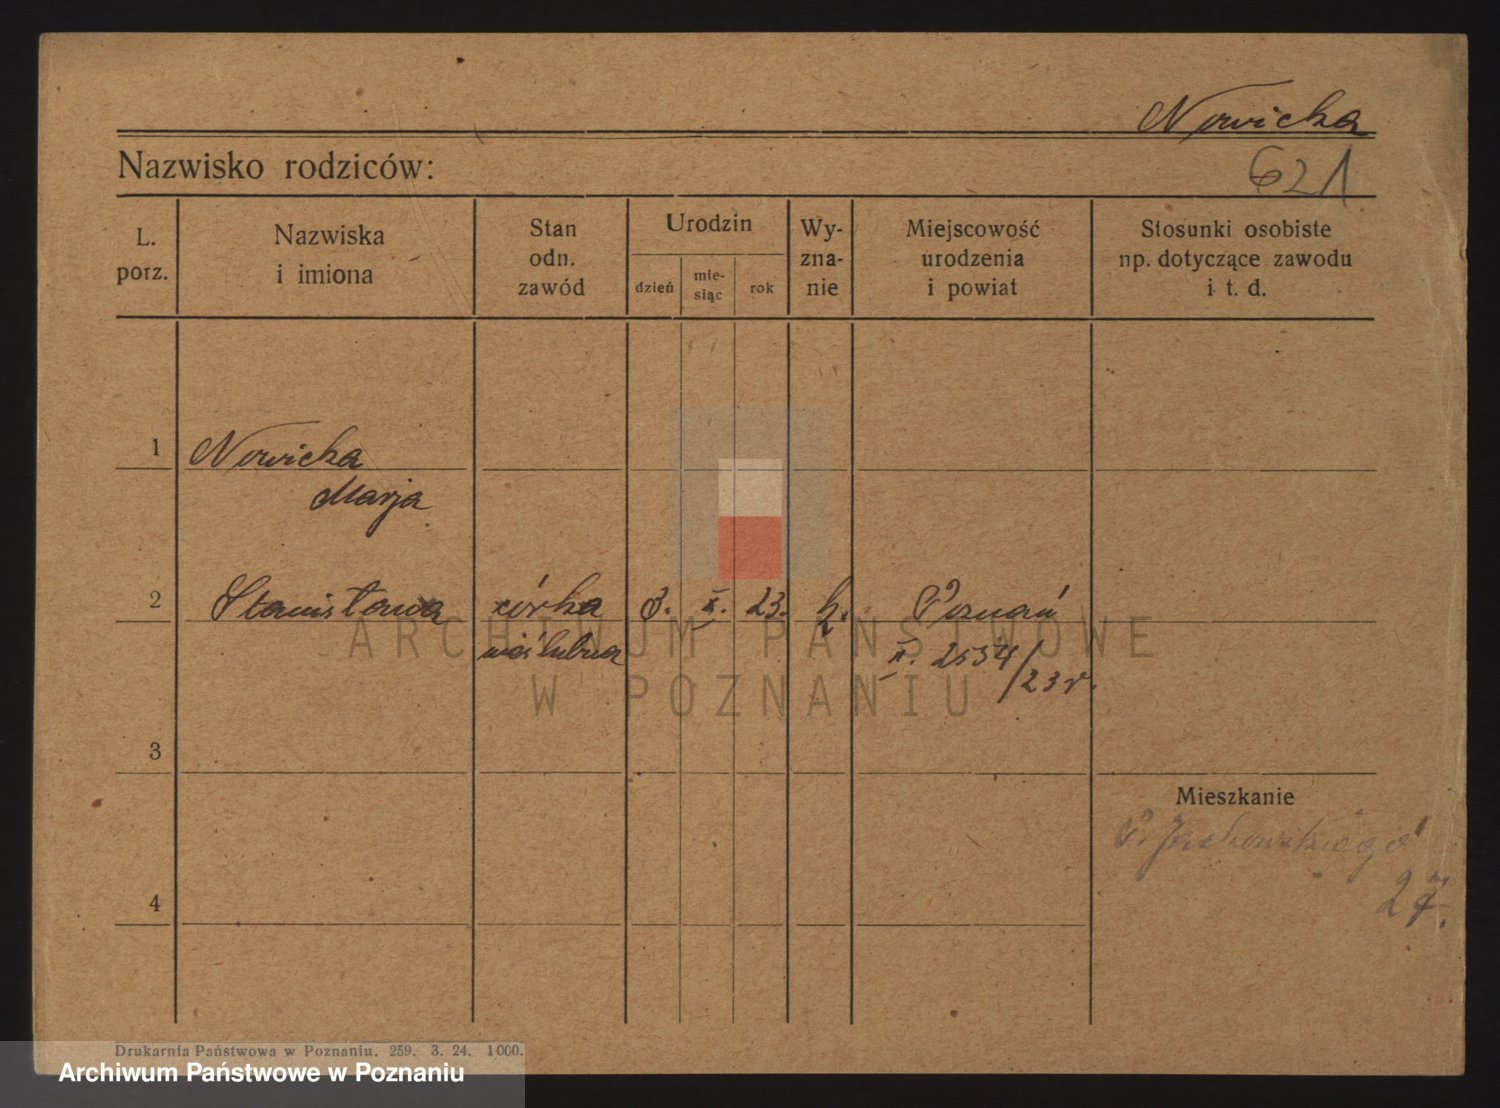 Nowicka
Nazwisko rodziców:
621
L. porz.
Nazwiska i imiona
Stan odn. zawód
Urodzin
dzień
mie-siąc
rok
Wy-zna-nie
Miejscowość urodzenia i powiat
Stosunki osobiste np. dotyczące zawodu i t. d.
1 Nowicka
Marja
2 Stanisława córka 3. X. 23. k. Poznań
nieślubna II. 2534/23 r.
ARCHIWUM PAŃSTWOWE
W POZNANIU
3
Mieszkanie
4
Drukarnia Państwowa w Poznaniu. 259. 3. 24. 1000.
Archiwum Państwowe w Poznaniu